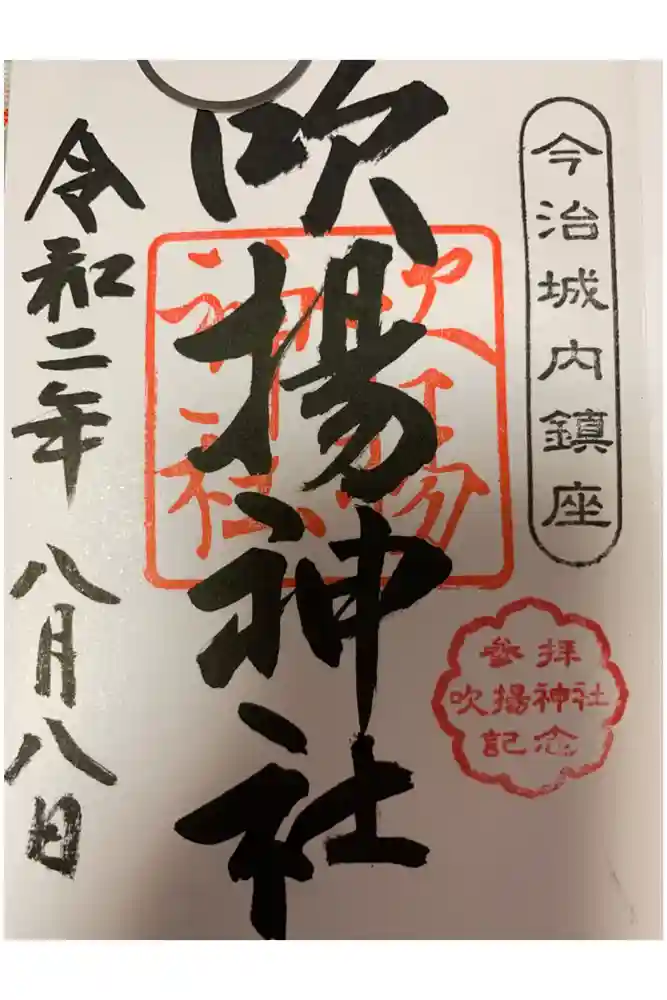 今治城内鎮座
吹揚神社
吹揚
神社
参拝
吹揚神社
記念
令和二年 八月八日